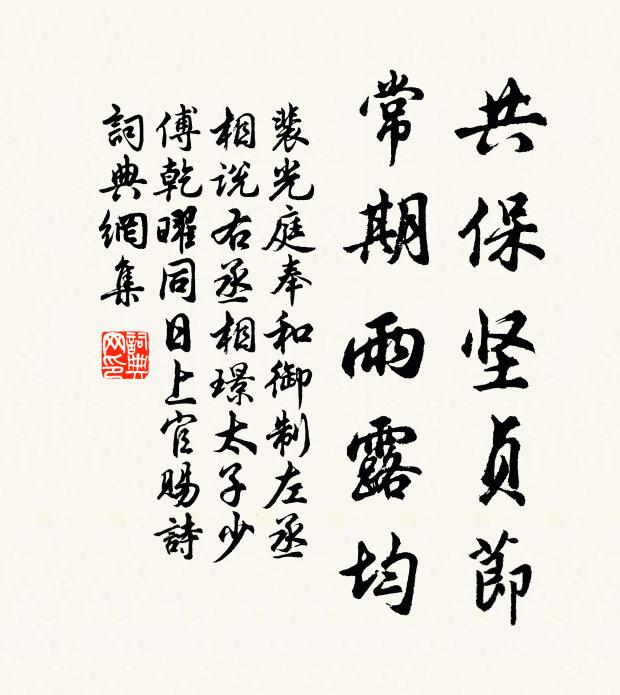 共保坚贞節
常期雨露均
裴光庭奉和御制左丞
相说右丞相璟太子少
傅乾曜同日上官賜詩
詞典網集
詞典
网印